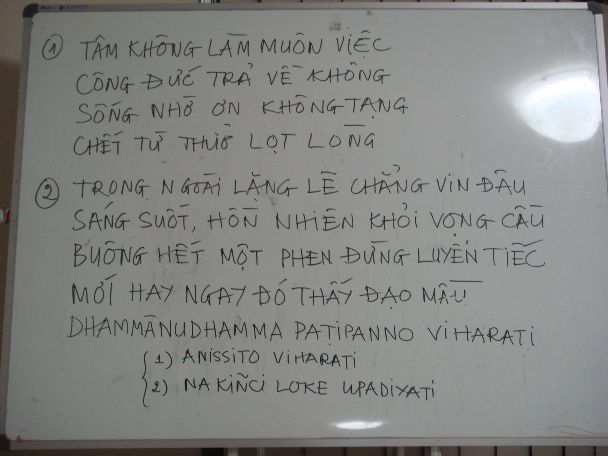 ① TÂM KHÔNG LÀM MUÔN VIỆC
CÔNG ĐỨC TRẢ VỀ KHÔNG
SỐNG NHỜ ƠN KHÔNG TẠNG
CHẾT TỪ THUỞ LỌT LÒNG
② TRONG NGOÀI LẶNG LẼ CHẲNG VIN ĐÂU
SÁNG SUỐT, HỒN NHIÊN KHỎI VỌNG CẦU
BUÔNG HẾT MỘT PHEN ĐỪNG LUYẾN TIẾC
MỚI HAY NGAY ĐÓ THẤY ĐẠO MẦU
DHAMMĀNUDHAMMA PAṬIPANNO VIHARATI
1) ANISSITO VIHARATI
2) NA KIÑCI LOKE UPADIYATI